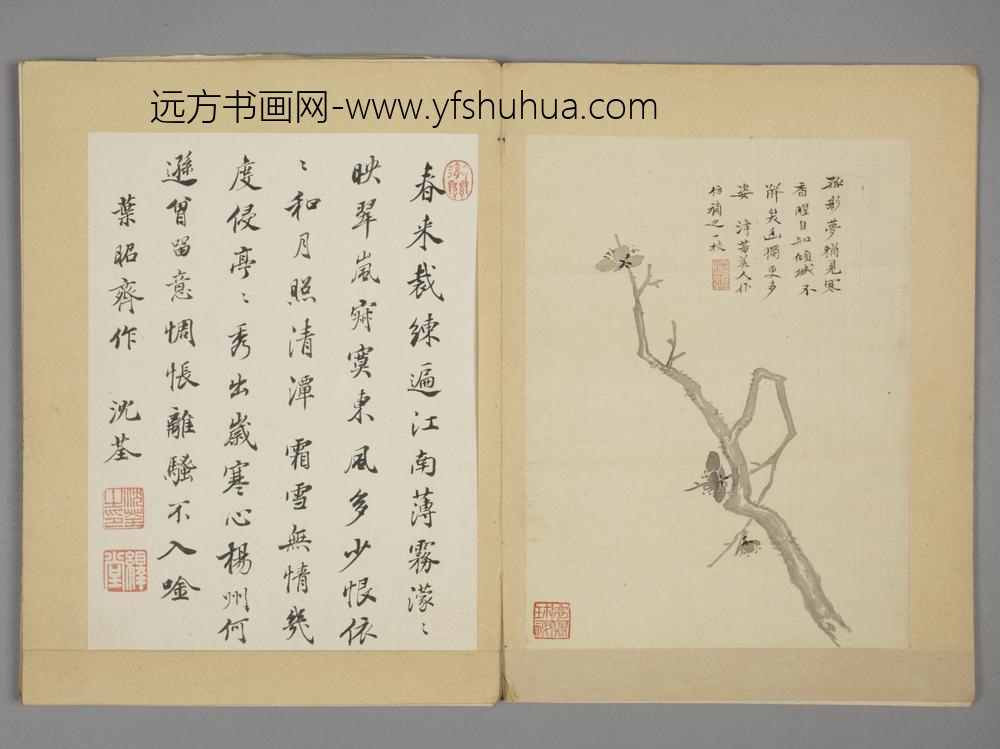 远方书画网-www.yfshuhua.com
孤影夢觴見寒
香醒自知傾城不
解矣幽獨更多
姿 津芳美人作
仿補之一枝
春来裁練遍江南薄霧濛〻
映翠嵐寂寞東風多少恨依
〻和月照清潭霜雪無情幾
度侵亭〻秀出歲寒心楊州何
遜曾留意惆悵離騷不入唫
葉昭齊作 沈荃
沈荃之印
繹堂